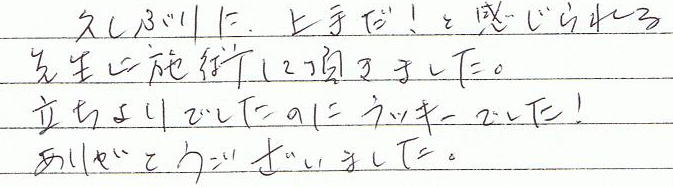 久しぶりに、上手だ!と感じられる
先生に施術して頂きました。
立ちよりでしたのにラッキーでした!
ありがとうございました。